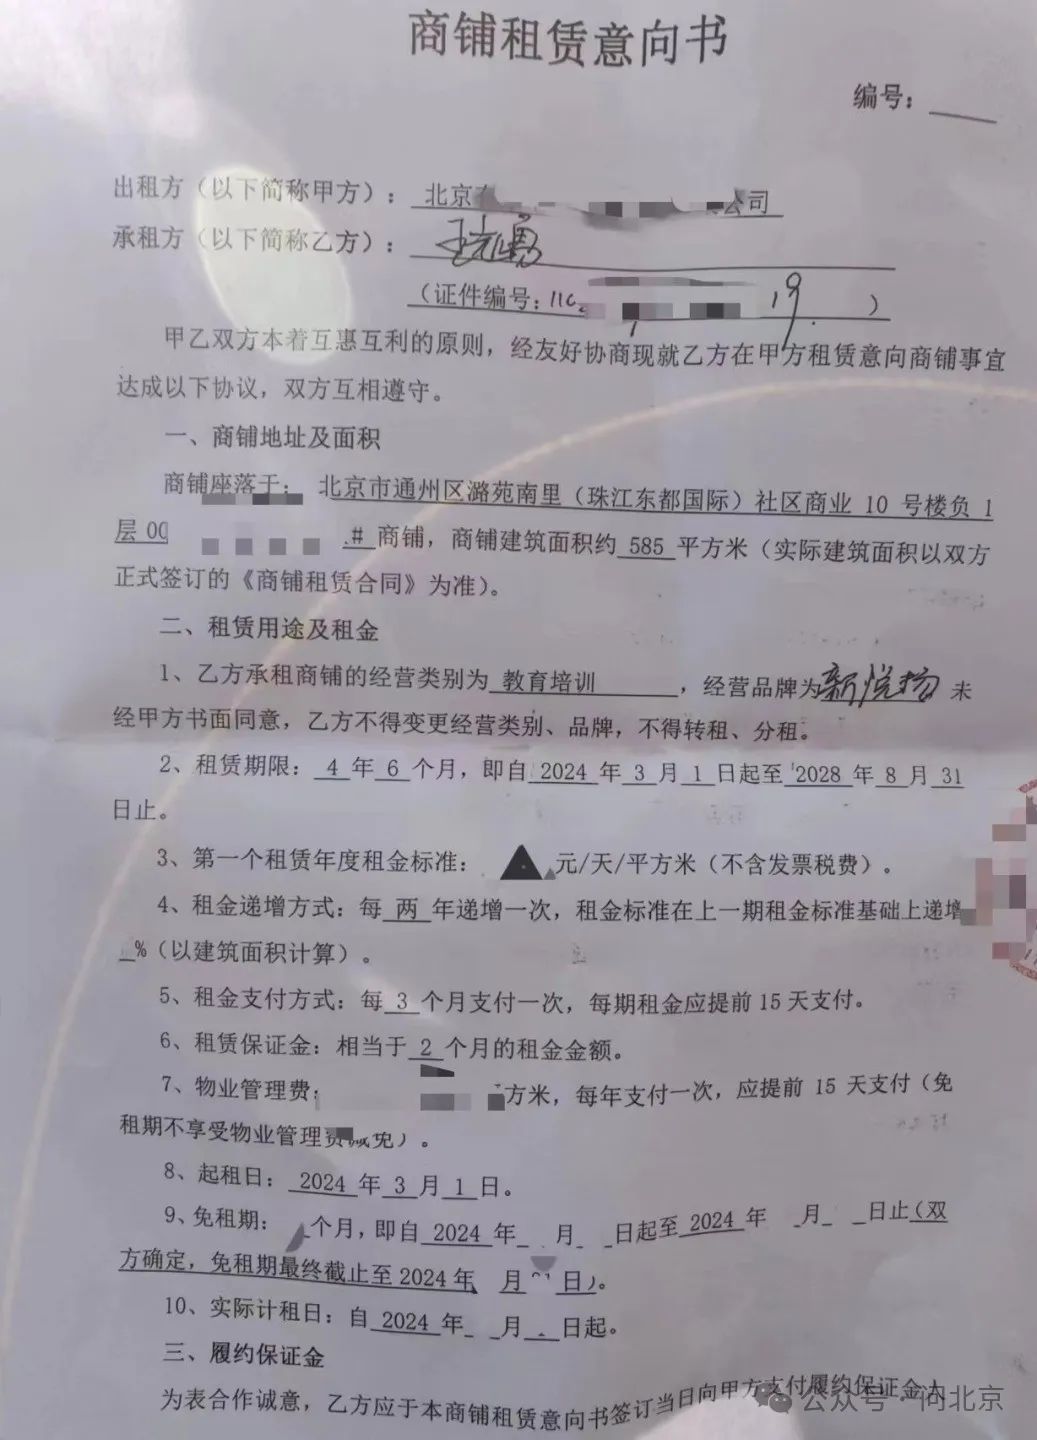 商铺租赁意向书
编号：
出租方（以下简称甲方）： 北京 公司
承租方（以下简称乙方）：
（证件编号： 19 ）
甲乙双方本着互惠互利的原则，经友好协商现就乙方在甲方租赁意向商铺事宜
达成以下协议，双方互相遵守。
一、商铺地址及面积
商铺座落于： 北京市通州区潞苑南里（珠江东都国际）社区商业 10 号楼负 1
层 00 # 商铺，商铺建筑面积约 585 平方米（实际建筑面积以双方
正式签订的《商铺租赁合同》为准）。
二、租赁用途及租金
1、乙方承租商铺的经营类别为 教育培训 ，经营品牌为新悦扬 未
经甲方书面同意，乙方不得变更经营类别、品牌，不得转租、分租。
2、租赁期限： 4 年 6 个月，即自 2024 年 3 月 1 日起至 2028 年 8 月 31
日止。
3、第一个租赁年度租金标准： 元/天/平方米（不含发票税费）。
4、租金递增方式：每 两 年递增一次，租金标准在上一期租金标准基础上递增
%（以建筑面积计算）。
5、租金支付方式：每 3 个月支付一次，每期租金应提前 15 天支付。
6、租赁保证金：相当于 2 个月的租金金额。
7、物业管理费： 方米，每年支付一次，应提前 15 天支付（免
租期不享受物业管理费减免）。
8、起租日： 2024 年 3 月 1 日。
9、免租期： 个月，即自 2024 年 月 日起至 2024 年 月 日止（双
方确定，免租期最终截止至 2024 年 月 日）。
10、实际计租日：自 2024 年 月 日起。
三、履约保证金
为表合作诚意，乙方应于本商铺租赁意向书签订当日向甲方支付履约保证金人
公众号·问北京